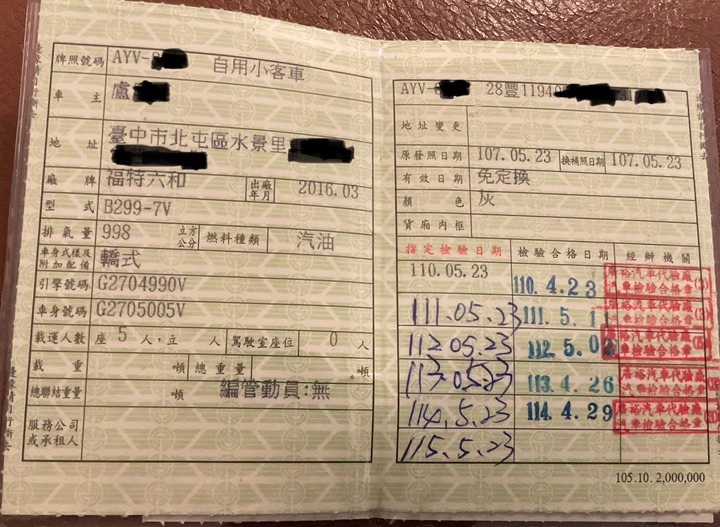 牌照號碼 AYV- 自用小客車
車主 盧
地址 臺中市北屯區水景里
廠牌 福特六和 出廠年月 2016.03
型式 B299-7V
排氣量 998 立方公分 燃料種類 汽油
車身式樣及附加配備 轎式
引擎號碼 G2704990V
車身號碼 G2705005V
載運人數 座 5 人,立 人 駕駛室座位 0 人
載重 噸 總重量 噸
總聯結重量 噸 編管動員:無
服務公司或承租人
AYV- 28豐1194
地址變更
原發照日期 107.05.23 換補照日期 107.05.23
有效日期 免定換
顏色 灰
貨廂內框
指定檢驗日期 檢驗合格日期 經辦機關
110.05.23 110.4.23 汽車代驗廠 汽車檢驗合格章
111.05.23 111.5.11 汽車代驗廠 汽車檢驗合格章
112.05.23 112.5.02 汽車代驗廠 汽車檢驗合格章
113.05.23 113.4.26 汽車代驗廠 汽車檢驗合格章
114.5.23 114.4.29 汽車代驗廠 汽車檢驗合格章
115.5.23
105.10. 2,000,000